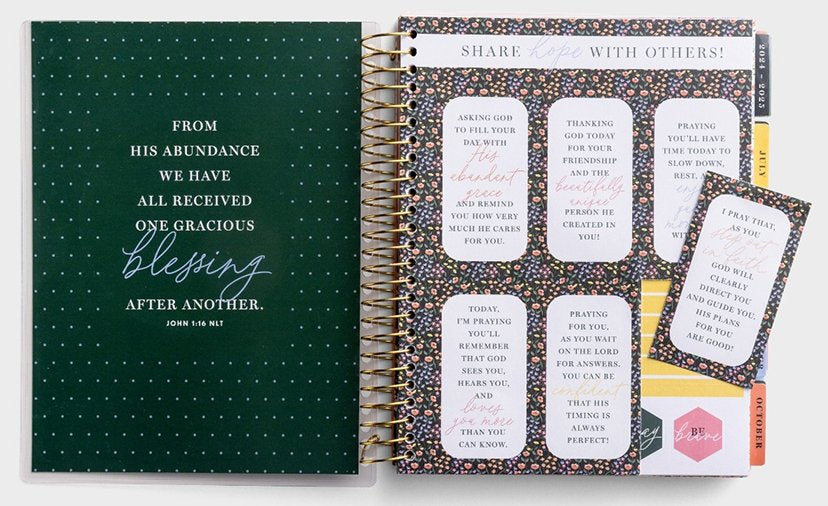 FROM
HIS ABUNDANCE
WE HAVE
ALL RECEIVED
ONE GRACIOUS
blessing
AFTER ANOTHER.
JOHN 1:16 NLT
SHARE hope WITH OTHERS!
ASKING GOD
TO FILL YOUR
DAY WITH
His
abundant
grace
AND REMIND
YOU HOW VERY
MUCH HE CARES
FOR YOU.
THANKING
GOD TODAY
FOR YOUR
FRIENDSHIP
AND THE
beautifully
unique
PERSON HE
CREATED IN
YOU!
PRAYING
YOU'LL HAVE
TIME TODAY TO
SLOW DOWN,
REST,
WIT
I PRAY THAT,
AS YOU
step out
in faith
GOD WILL
CLEARLY
DIRECT YOU
AND GUIDE YOU.
HIS PLANS
FOR YOU
ARE GOOD!
TODAY,
I'M PRAYING
YOU'LL
REMEMBER
THAT GOD
SEES YOU,
HEARS YOU,
AND
loves
you more
THAN YOU
CAN KNOW.
PRAYING
FOR YOU,
AS YOU WAIT
ON THE LORD
FOR ANSWERS.
YOU CAN BE
confident
THAT HIS
TIMING IS
ALWAYS
PERFECT!
BE
brave
2024 – 2025
JULY
OCTOBER